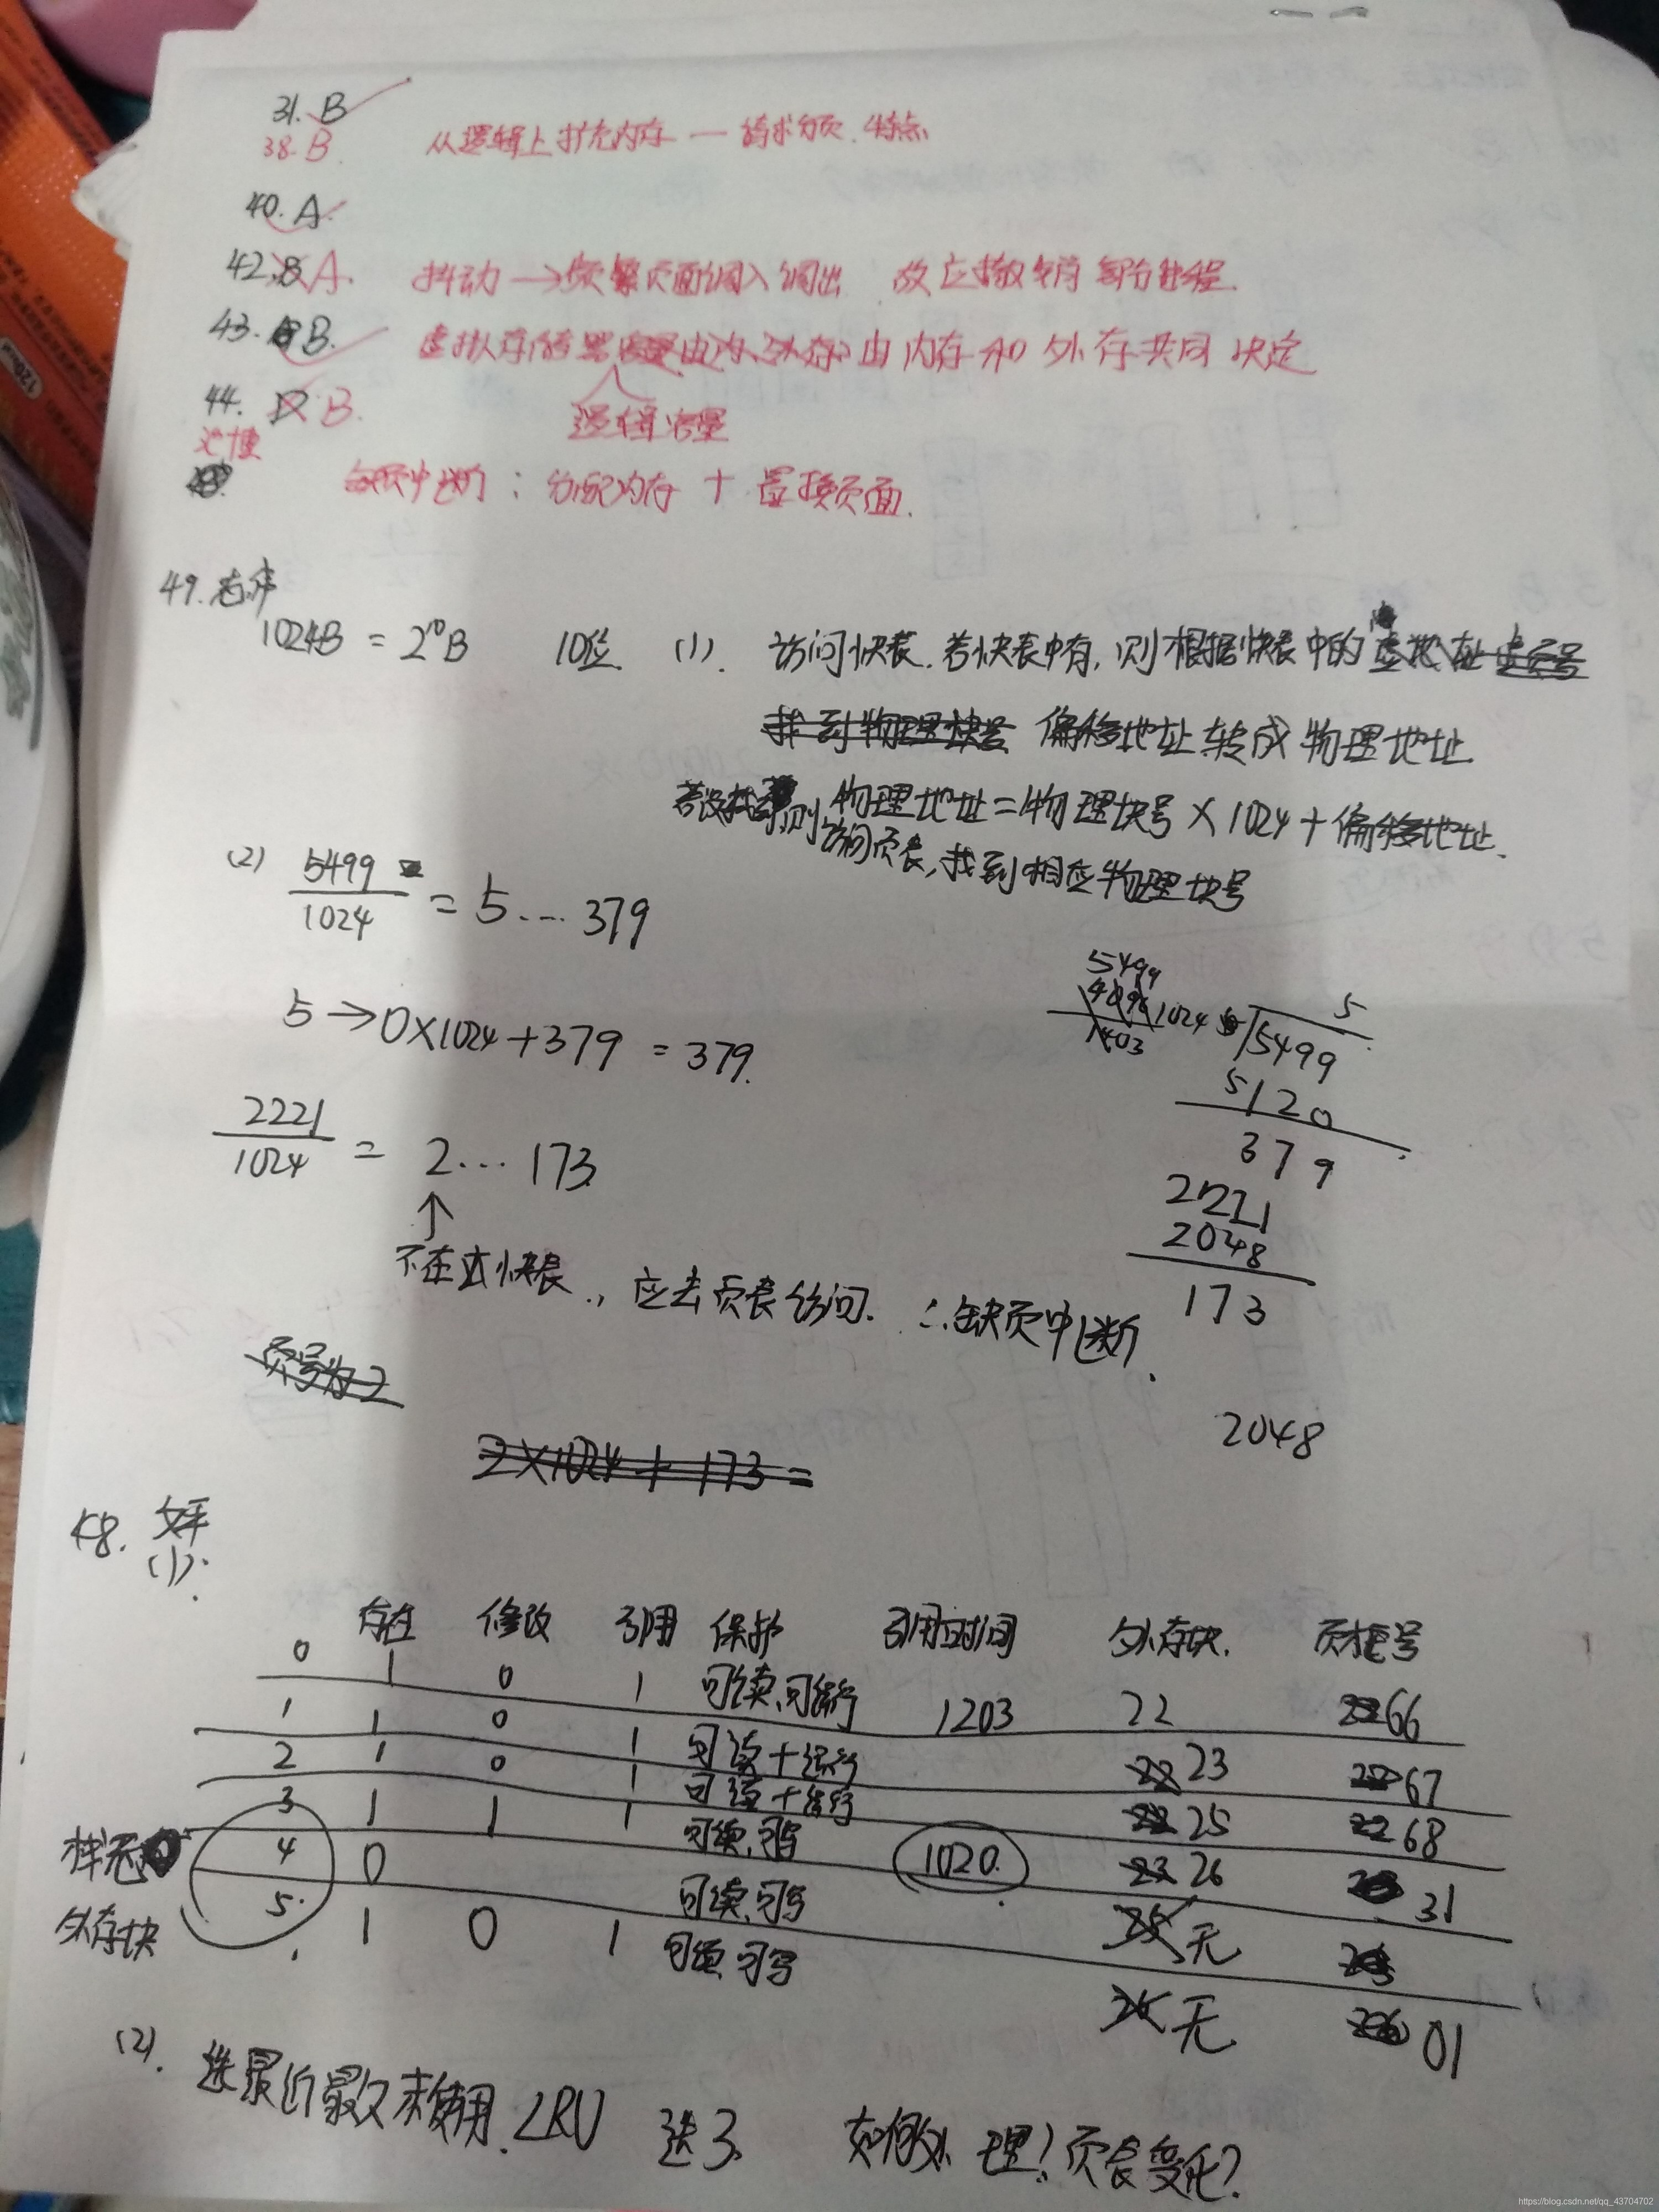 31. B
38. B 从逻辑上扩充内存 — 请求分页. 特点
40. A.
42. B A. 抖动 → 频繁页面调入调出 故应撤销部分进程.
43. B. 虚拟存储器 由内存和外存共同决定
逻辑容量
44. D B.
缺页中断: 分配内存 + 置换页面.
49.
1024B = 2¹⁰B 10位 (1). 访问快表. 若快表中有, 则根据快表中的
找到物理块号 偏移地址 转成物理地址
物理地址 = 物理块号 × 1024 + 偏移地址.
则访问页表, 找到相应物理块号
(2) 5499/1024 = 5 ... 379
5 → 0×1024 + 379 = 379.
5499
4096
1403
1024 5499 5
5120
379
2221/1024 = 2 ... 173
2221
2048
173
不在快表, 应去页表访问. ∴缺页中断.
页号为2
2048
2×1024 + 173 =
48.
(1).
存在 修改 引用 保护 引用时间 外存块. 页框号
0 1 0 1 可读、可执行 1203 22 66
1 1 0 1 可读+ 23 67
2 1 0 1 可读+ 25 68
3 1 1 1 可读、可写 1020. 26 31
4 0 可读、可写 无
5. 1 0 1 可读、可写 无 01
外存块
(2). 选最近最久未使用. LRU 选3. 如何处理? 页表变化?
https://blog.csdn.net/qq_43704702